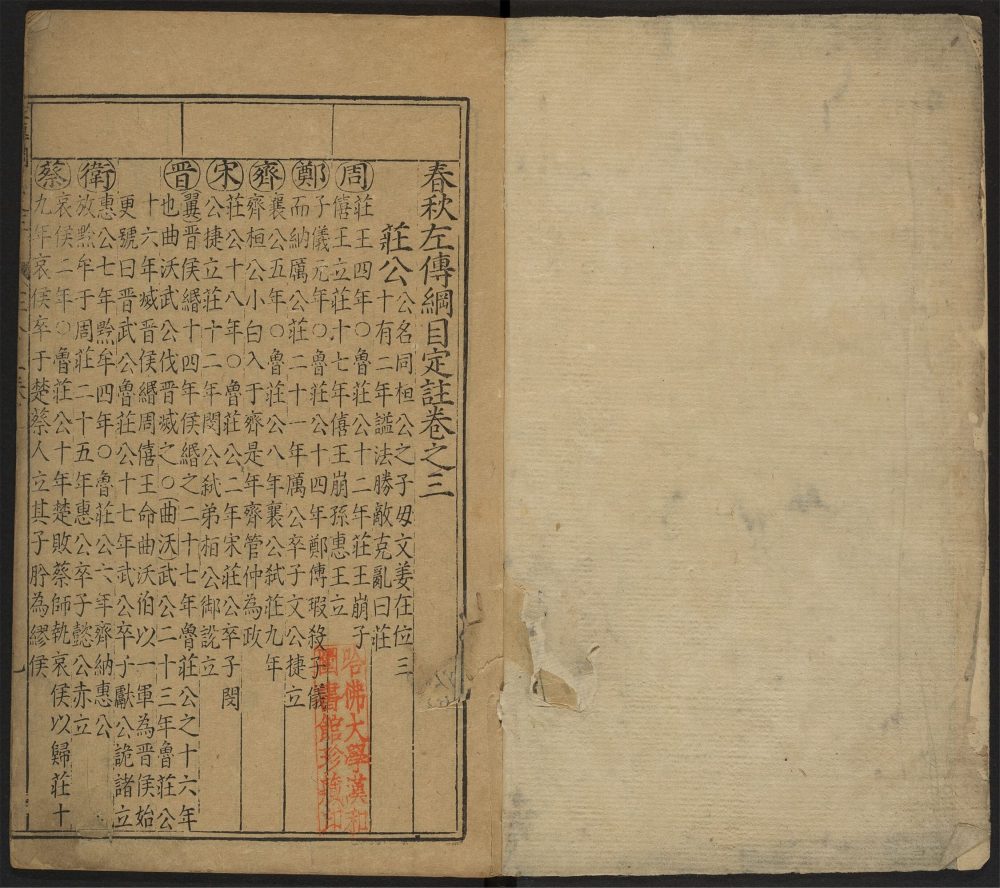 春秋左傳綱目定註卷之三
莊公
公名同桓公之子毋文姜在位三
十有二年謚法勝敵克亂曰莊
周
莊王四年〇魯莊公十二年莊王崩子
僖王立莊十七年僖王崩孫惠王立
鄭
子儀元年〇魯莊公十四年鄭傳瑕殺子儀
而納厲公莊二十一年厲公卒子文公捷立
齊
襄公五年〇魯莊公八年襄公弑莊九年
齊桓公小白入于齊是年齊管仲為政
宋
莊公十八年〇魯莊公二年宋莊公卒子閔
公捷立莊十二年閔公弑弟栢公御說立
晉
翼晉侯緡十四年侯緡之二十七年魯莊公之十六年
也曲沃武公伐晉滅之〇曲沃武公二十三年魯莊公
十六年滅晉侯緡周僖王命曲沃伯以一軍為晉侯始
更號曰晉武公魯莊公十七年武公卒子獻公詭諸立
衛
惠公七年黔牟四年〇魯莊公六年齊納惠公
放黔牟于周莊二十五年惠公卒子懿公赤立
蔡
哀侯二年〇魯莊公十年楚敗蔡師執哀侯以歸莊十
九年哀侯卒于楚蔡人立其子肸為繆侯
哈佛大學漢和
圖書館珍藏印